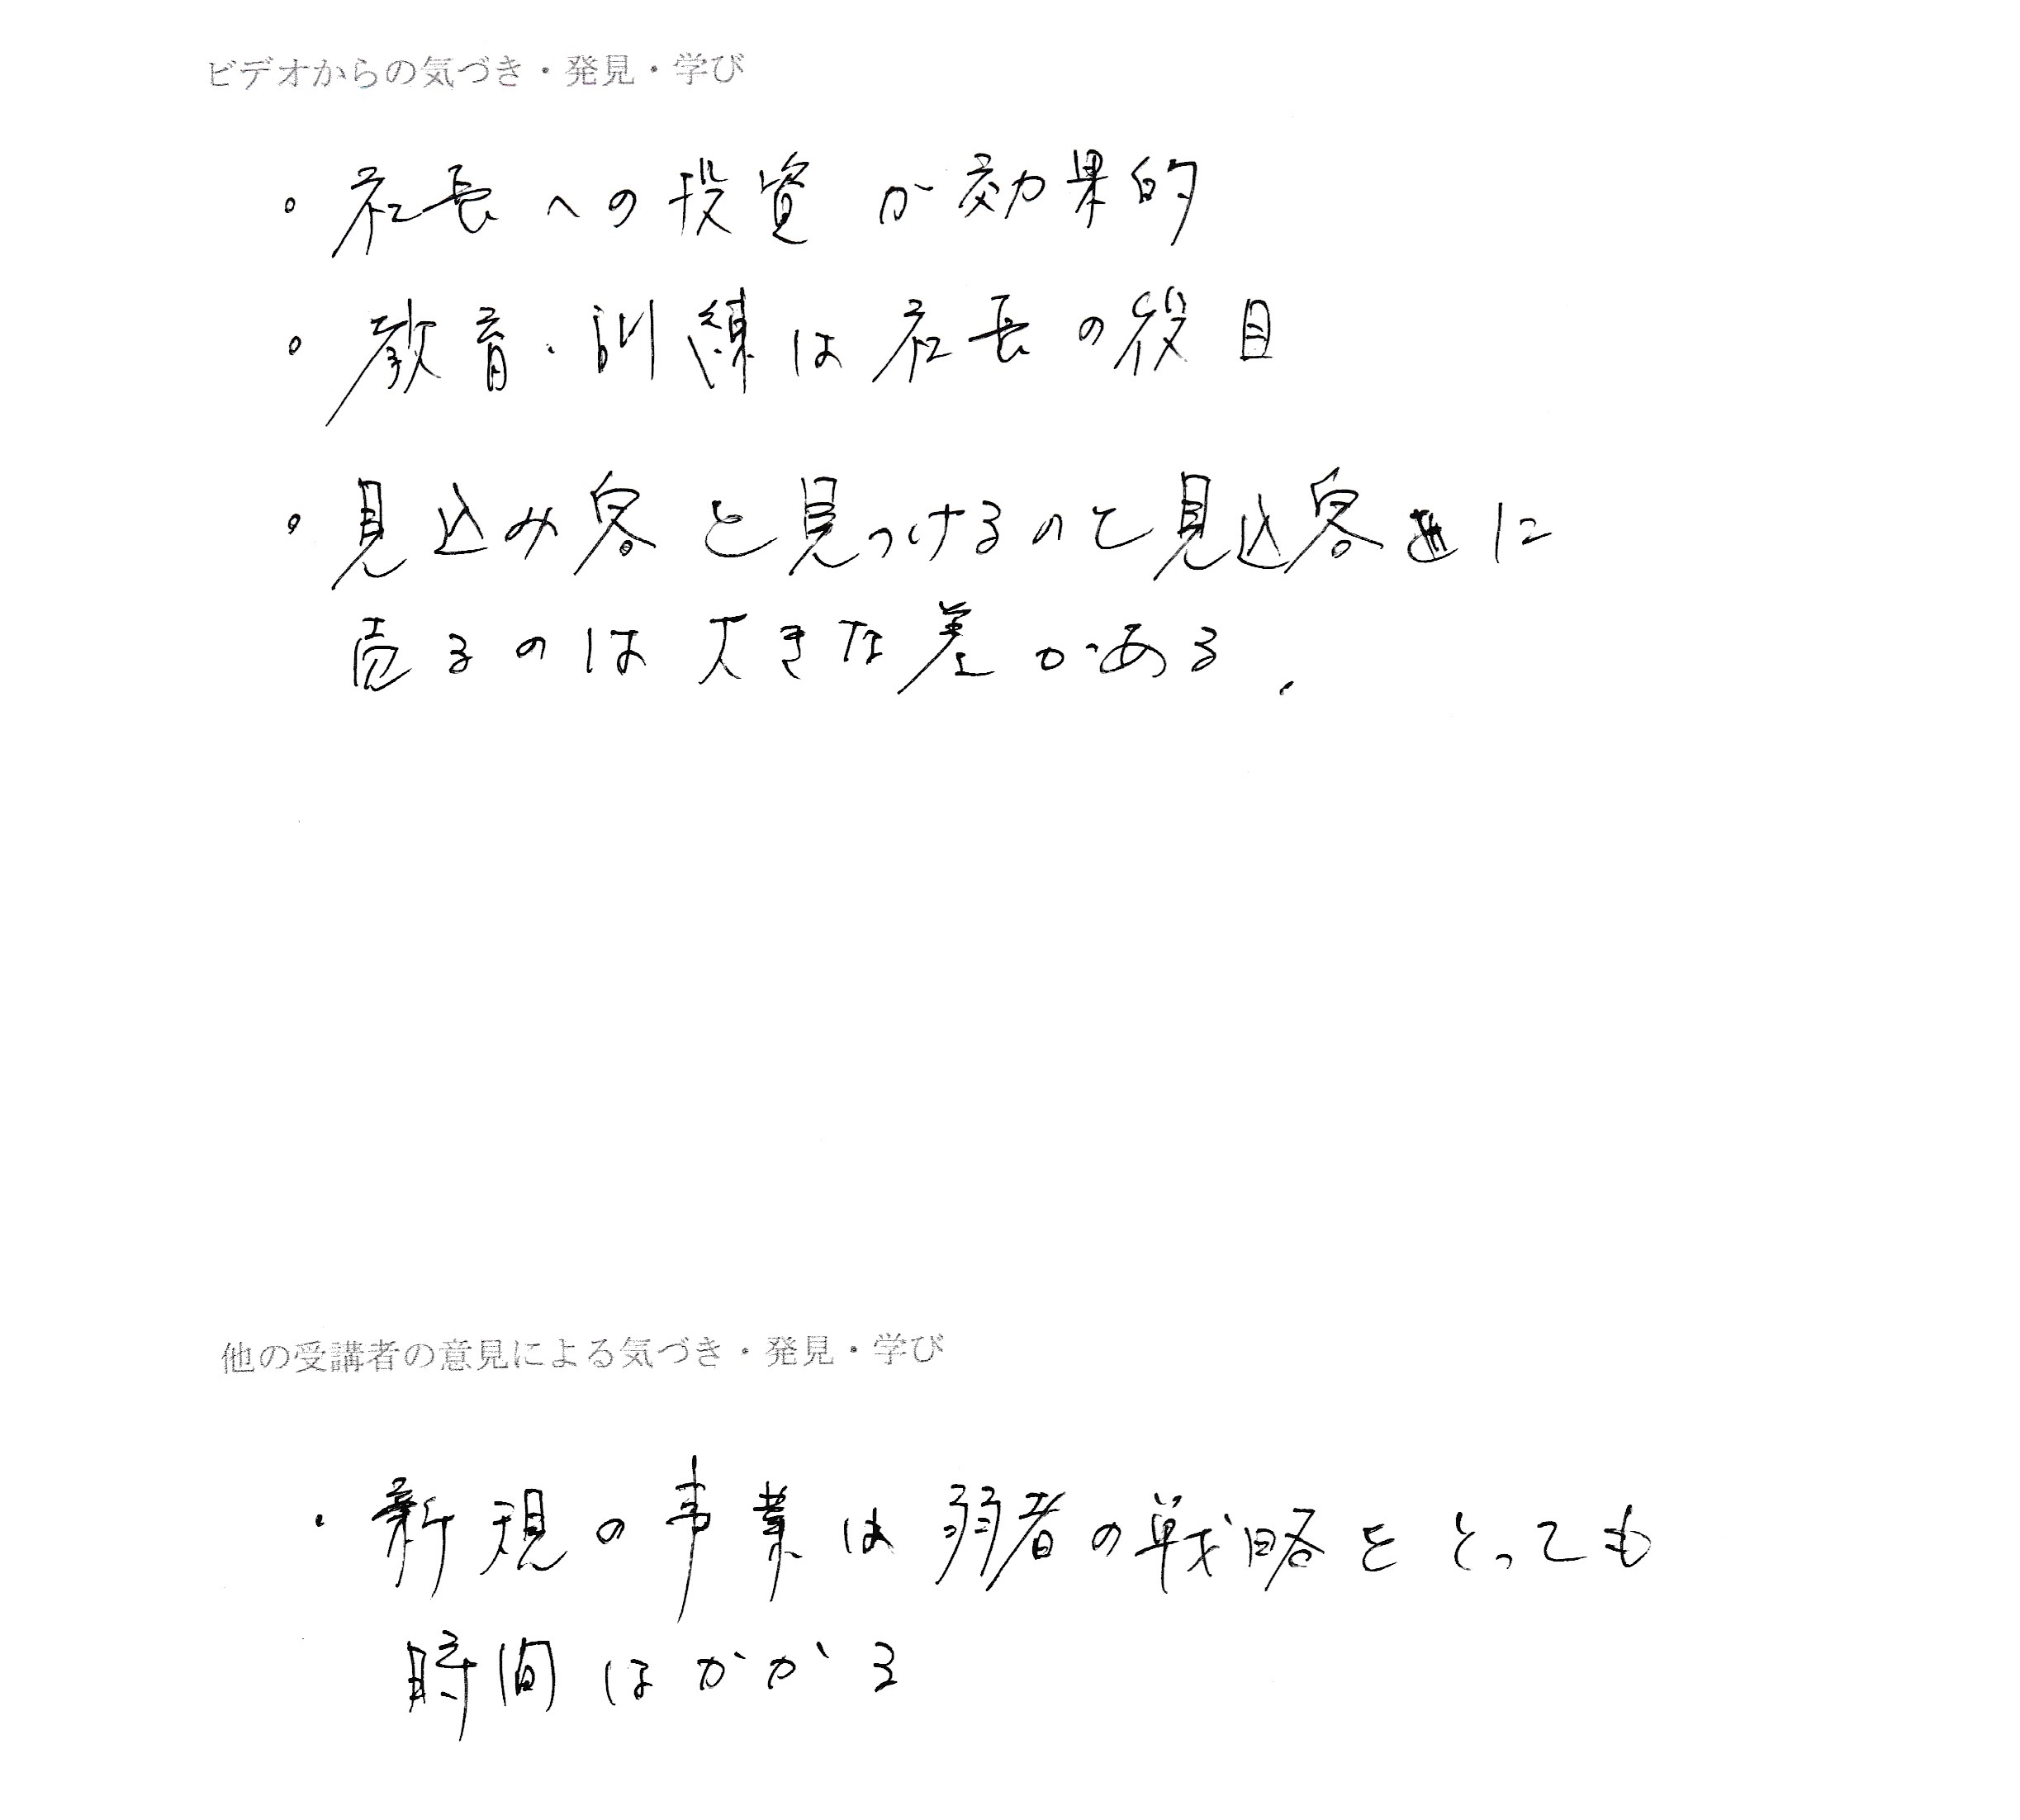 ビデオからの気づき・発見・学び
・社長への投資が効果的
・教育・訓練は社長の役目
・見込み客と見つけるのと見込客に
売るのは大きな差がある.
他の受講者の意見による気づき・発見・学び
・新規の事業は弱者の戦略をとっても
時間はかかる